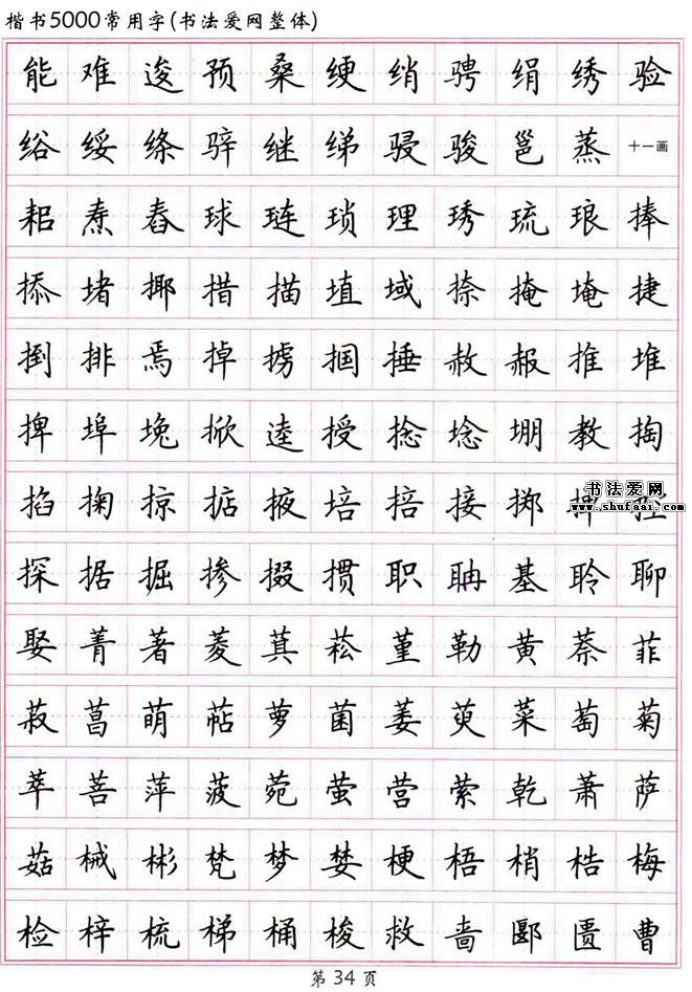 楷书5000常用字(书法爱网整体)
能难逡预桑绠绡骋绢绣验
绤绥绦骍继绨骎骏邕蒸十一画
耜焘舂球琏琐理琇琉琅捧
掭堵揶措描埴域捺掩埯捷
捯排焉掉掳掴捶赦赧推堆
捭埠堍掀逵授捻埝堋教掏
掐掬掠掂掖培掊接掷
书法爱网
www.shufaai.com
探据掘掺掇掼职聃基聆聊
娶菁著菱萁菘堇勒黄萘菲
菽菖萌萜萝菌萎萸菜萄菊
萃菩萍菠菀萤营萦乾萧萨
菇械彬梵梦婪梗梧梢梏梅
检梓梳梯桶梭救啬郾匮曹
第 34 页